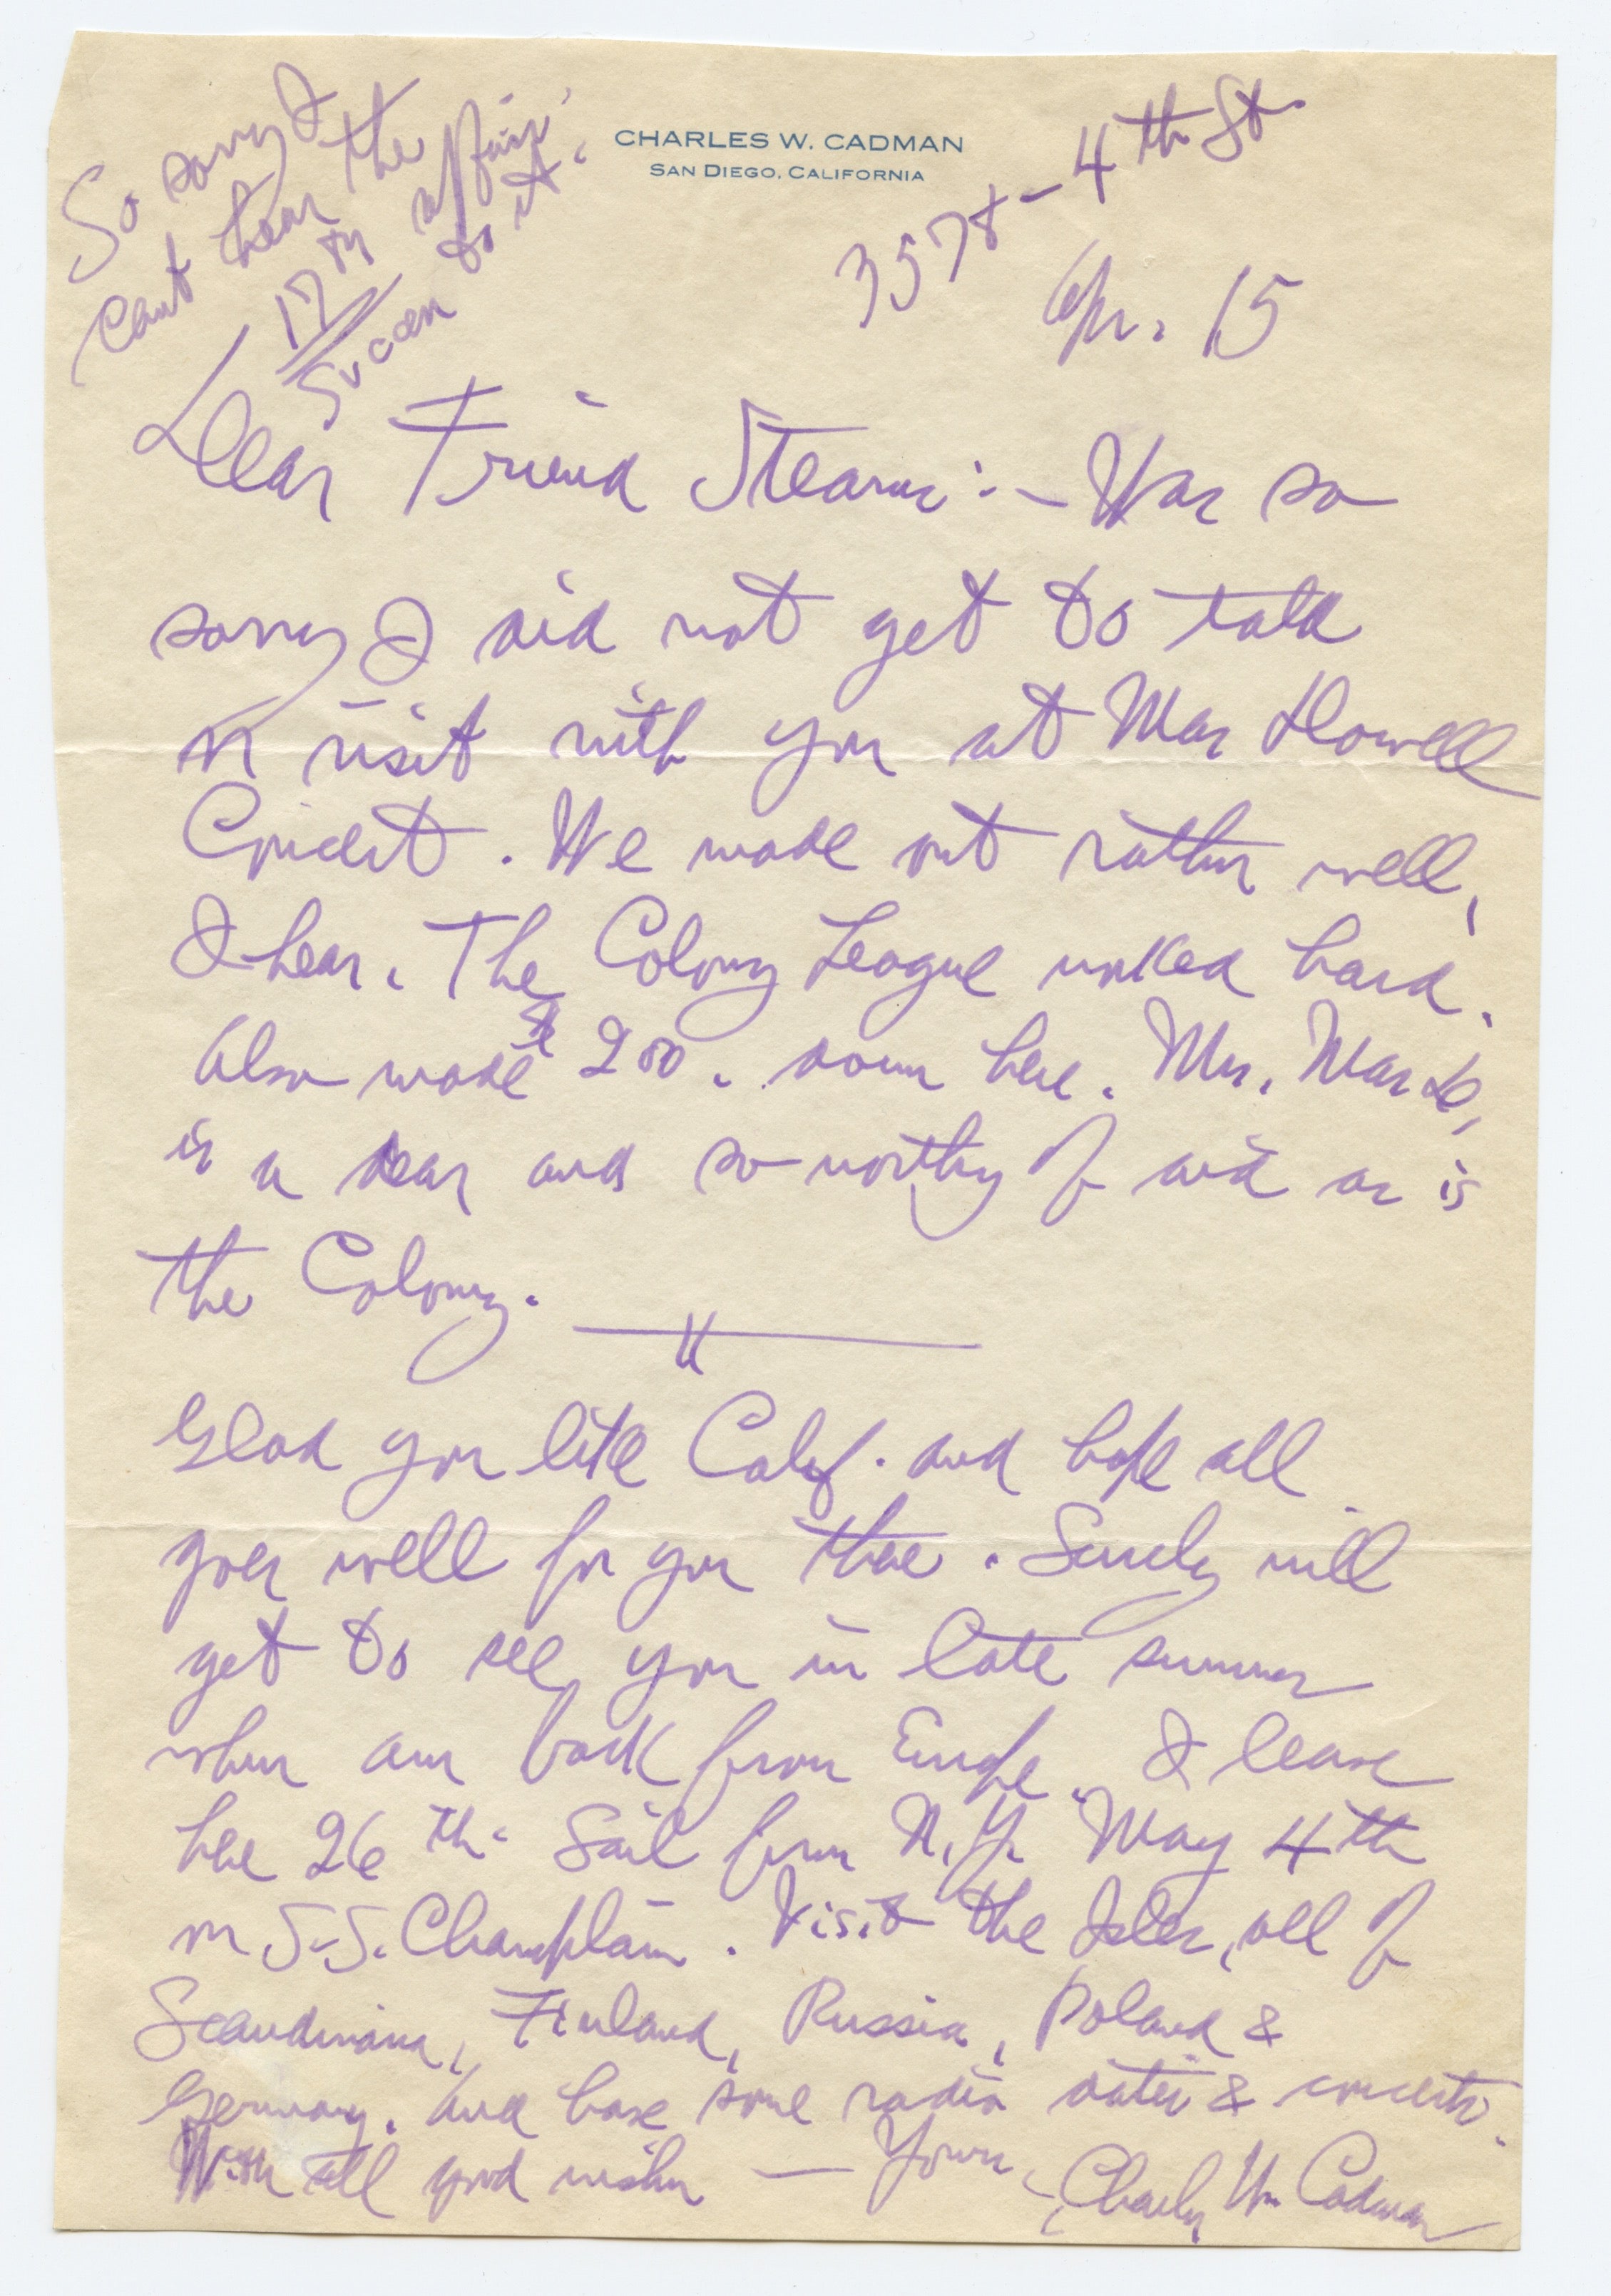 CHARLES W. CADMAN
SAN DIEGO, CALIFORNIA
3578 - 4th St.
Apr. 15
So sorry I
cant hear the
17th affair.
Success to it.
Dear Friend Stearns :- Was so
sorry I did not get to talk
or visit with you at MacDowell
Concert. We made out rather well,
I hear. The Colony League worked hard.
Also made $ 200. down here. Mrs. MacD,
is a dear and so worthy of aid as is
the Colony.
Glad you like Calif. and hope all
goes well for you there. Surely will
get to see you in late summer
when am back from Europe. I leave
here 26th. Sail from N.Y. May 4th
on S.S. Champlain. Visit the Isles, all of
Scandinavia, Finland, Russia, Poland &
Germany. And have some radio dates & concerts.
With all good wishes — Yours,
Charles W. Cadman